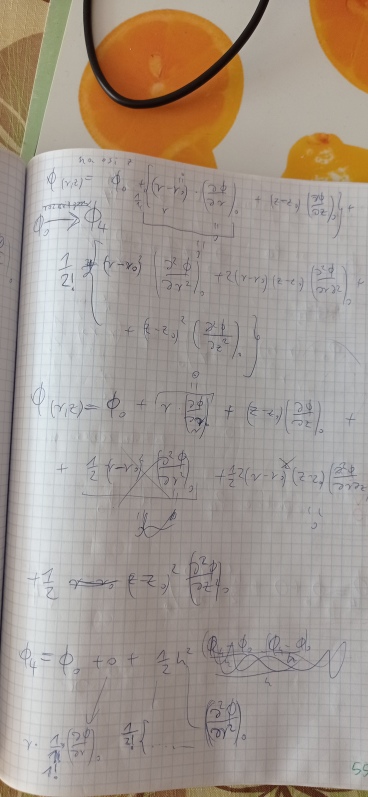 ϕ(r,z) = ϕ₀ + [(r-r₀) (∂ϕ/∂r)₀ + (z-z₀) (∂ϕ/∂z)₀] +
ϕ₀ → ϕ₄
1/2! { (r-r₀)² (∂²ϕ/∂r²)₀ + 2(r-r₀)(z-z₀) (∂²ϕ/∂r∂z)₀ +
+ (z-z₀)² (∂²ϕ/∂z²)₀ }
ϕ(r,z) = ϕ₀ + r (∂ϕ/∂r)₀ + (z-z₀) (∂ϕ/∂z)₀ +
+ 1/2 (r-r₀)² (∂²ϕ/∂r²)₀ + 1/2 2(r-r₀)(z-z₀) (∂²ϕ/∂r∂z)
+ 1/2 (z-z₀)² (∂²ϕ/∂z²)₀
ϕ₄ = ϕ₀ + 0 + 1/2 h²
r · 1/1! (∂ϕ/∂r)₀ 1/2! { ...... (∂²ϕ/∂r²)₀